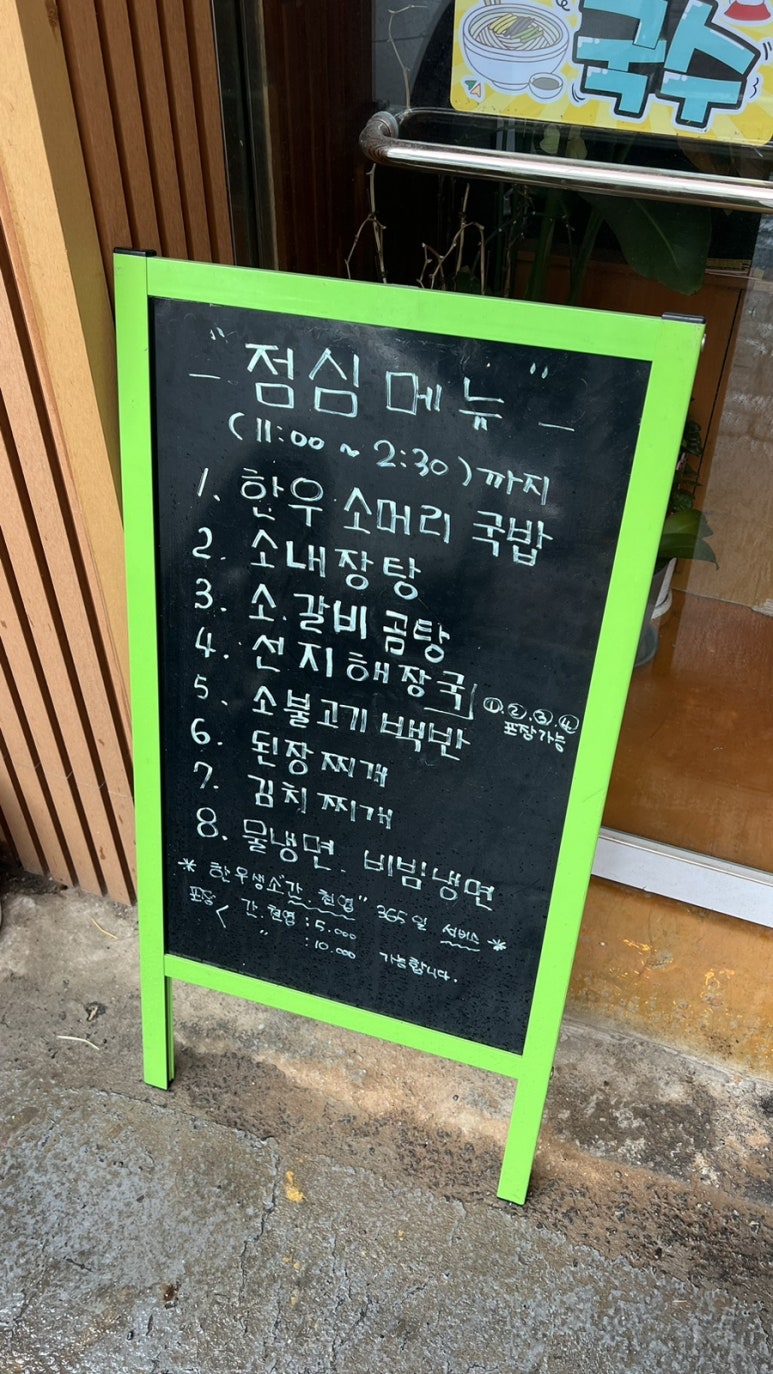 국수
" 점심 메뉴 "
(11:00 ~ 2:30)까지
1. 한우 소머리 국밥
2. 소내장탕
3. 소.갈비 곰탕
4. 선지해장국
①.②.③.④
포장가능
5. 소불고기 백반
6. 된장찌개
7. 김치찌개
8. 물냉면. 비빔냉면
* 한우생소"간. 천엽" 365일 서비스 *
포장 < 간.천엽 : 5.000
" : 10.000 가능합니다.